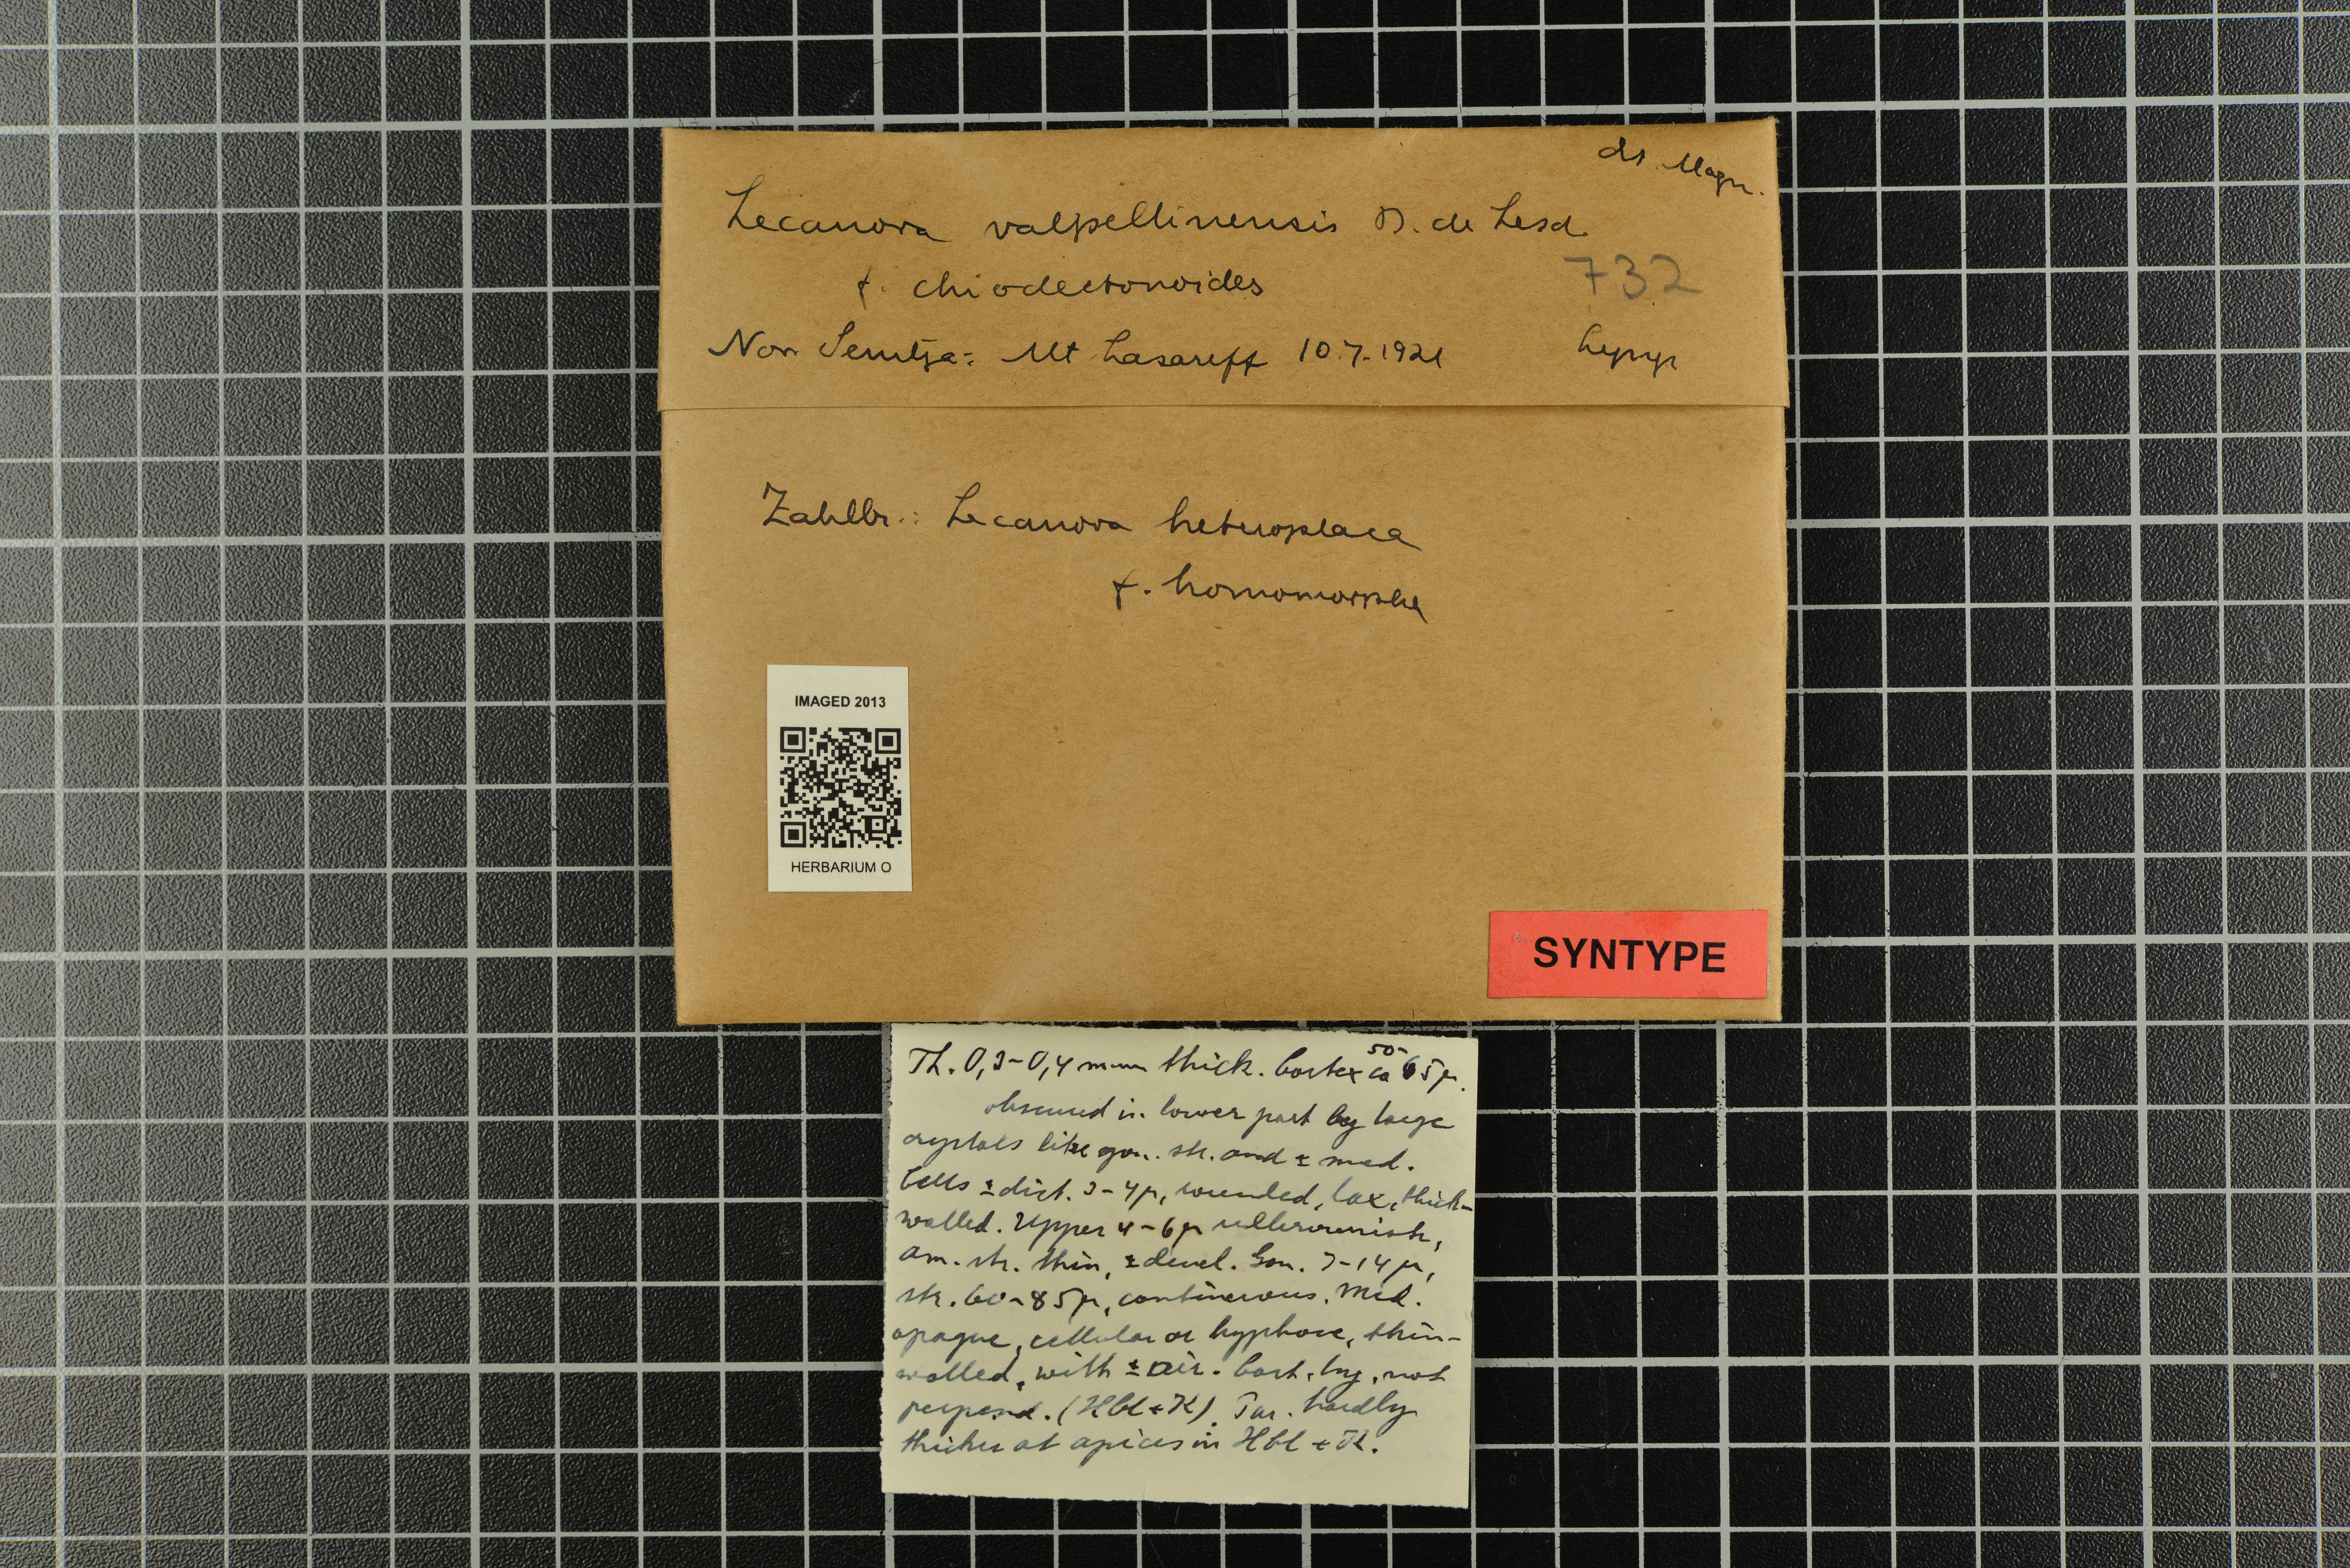 dt. Magn.
Lecanora valpellinensis B. de Lesd.
f. chiodectonoides
732
Nov. Semlja: Mt Lasareff 10.7.1921 Lynge
Zahlbr.: Lecanora heteroplaca
f. homomorpha
IMAGED 2013
HERBARIUM O
SYNTYPE
Th. 0,3-0,4 mm thick. Cortex ca 50-65µ.
obscured in lower part by large
crystals like gon. str. and ± med.
Cells ± dist. 3-4µ, rounded, lax, thick-
walled. Upper 4-6µ
am. str. thin, ± devel. Gon. 7-14µ,
str. 60-85µ, continuous. Med.
opaque, cellular or hyphose, thin-
walled, with ± air. Cort. hy. not
perpend. (HCl + K). Par. hardly
thicker at apices in HCl + K.